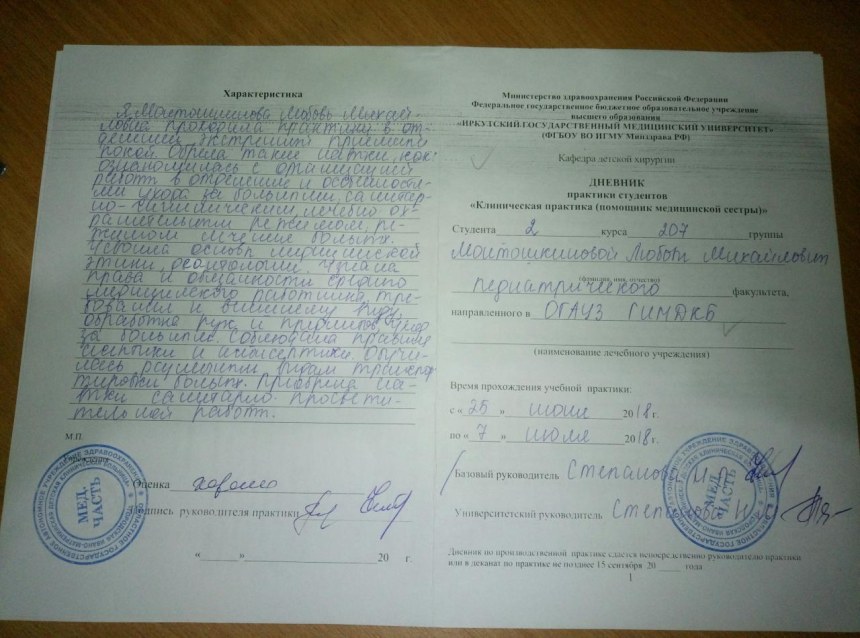 Характеристика
Я, Матошкинова Любовь Михай-
ловна проходила практику в от-
делении экстренный приемный
покой. Обрела такие навыки, как:
ознакомилась с организацией
работы в отделение и особенностя-
ми ухода за больными, санитар-
но-гигиеническим, лечебно-ох-
ранительным режимом, ре-
жимом лечения больных.
Усвоила основы медицинской
этики, деонтологии. Узнала
права и обязанности среднего
медицинского работника, тре-
бования к внешнему виду,
обработка рук и принципы ухода
за больными. Соблюдала правила
асептики и антисептики. Обучи-
лась различным видам транспор
тировки больных. Приобрела на-
выки санитарно-просвети-
тельной работы.
М.П.
учреждения
Оценка хорошо
Подпись руководителя практики
« » 20 г.
МЕД.
ЧАСТЬ
Министерство здравоохранения Российской Федерации
Федеральное государственное бюджетное образовательное учреждение
высшего образования
«ИРКУТСКИЙ ГОСУДАРСТВЕННЫЙ МЕДИЦИНСКИЙ УНИВЕРСИТЕТ»
(ФГБОУ ВО ИГМУ Минздрава РФ)
Кафедра детской хирургии
ДНЕВНИК
практики студентов
«Клиническая практика (помощник медицинской сестры)»
Студента 2 курса 207 группы
Матошкиновой Любовь Михайловны
(фамилия, имя, отчество)
педиатрического факультета,
направленного в ОГАУЗ ГИМДКБ
(наименование лечебного учреждения)
Время прохождения учебной практики:
с « 25 » июня 2018 г.
по « 7 » июля 2018 г.
Базовый руководитель Степанова
Университетский руководитель Степанова
МЕД.
ЧАСТЬ
Дневник по производственной практике сдается непосредственно руководителю практики
или в деканат по практике не позднее 15 сентября 20 года
1